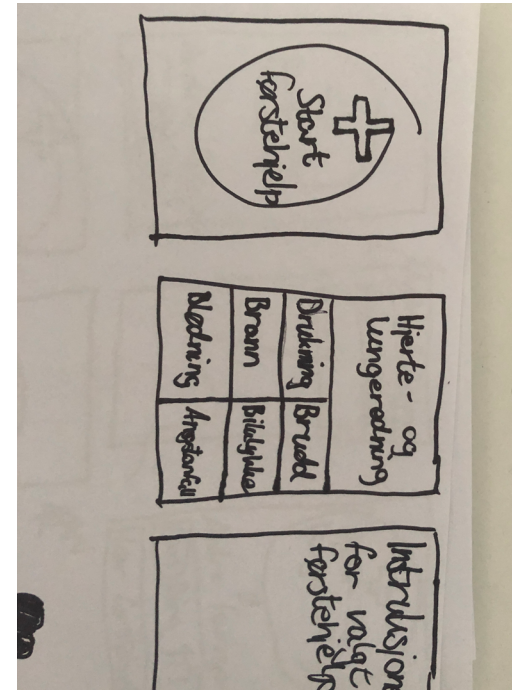 Start
førstehjelp
Hjerte- og
lungeredning
Drukning
Brudd
Brann
Bilulykke
Nødning
Angstanfall
Intruksjon
for valgt
førstehjelp